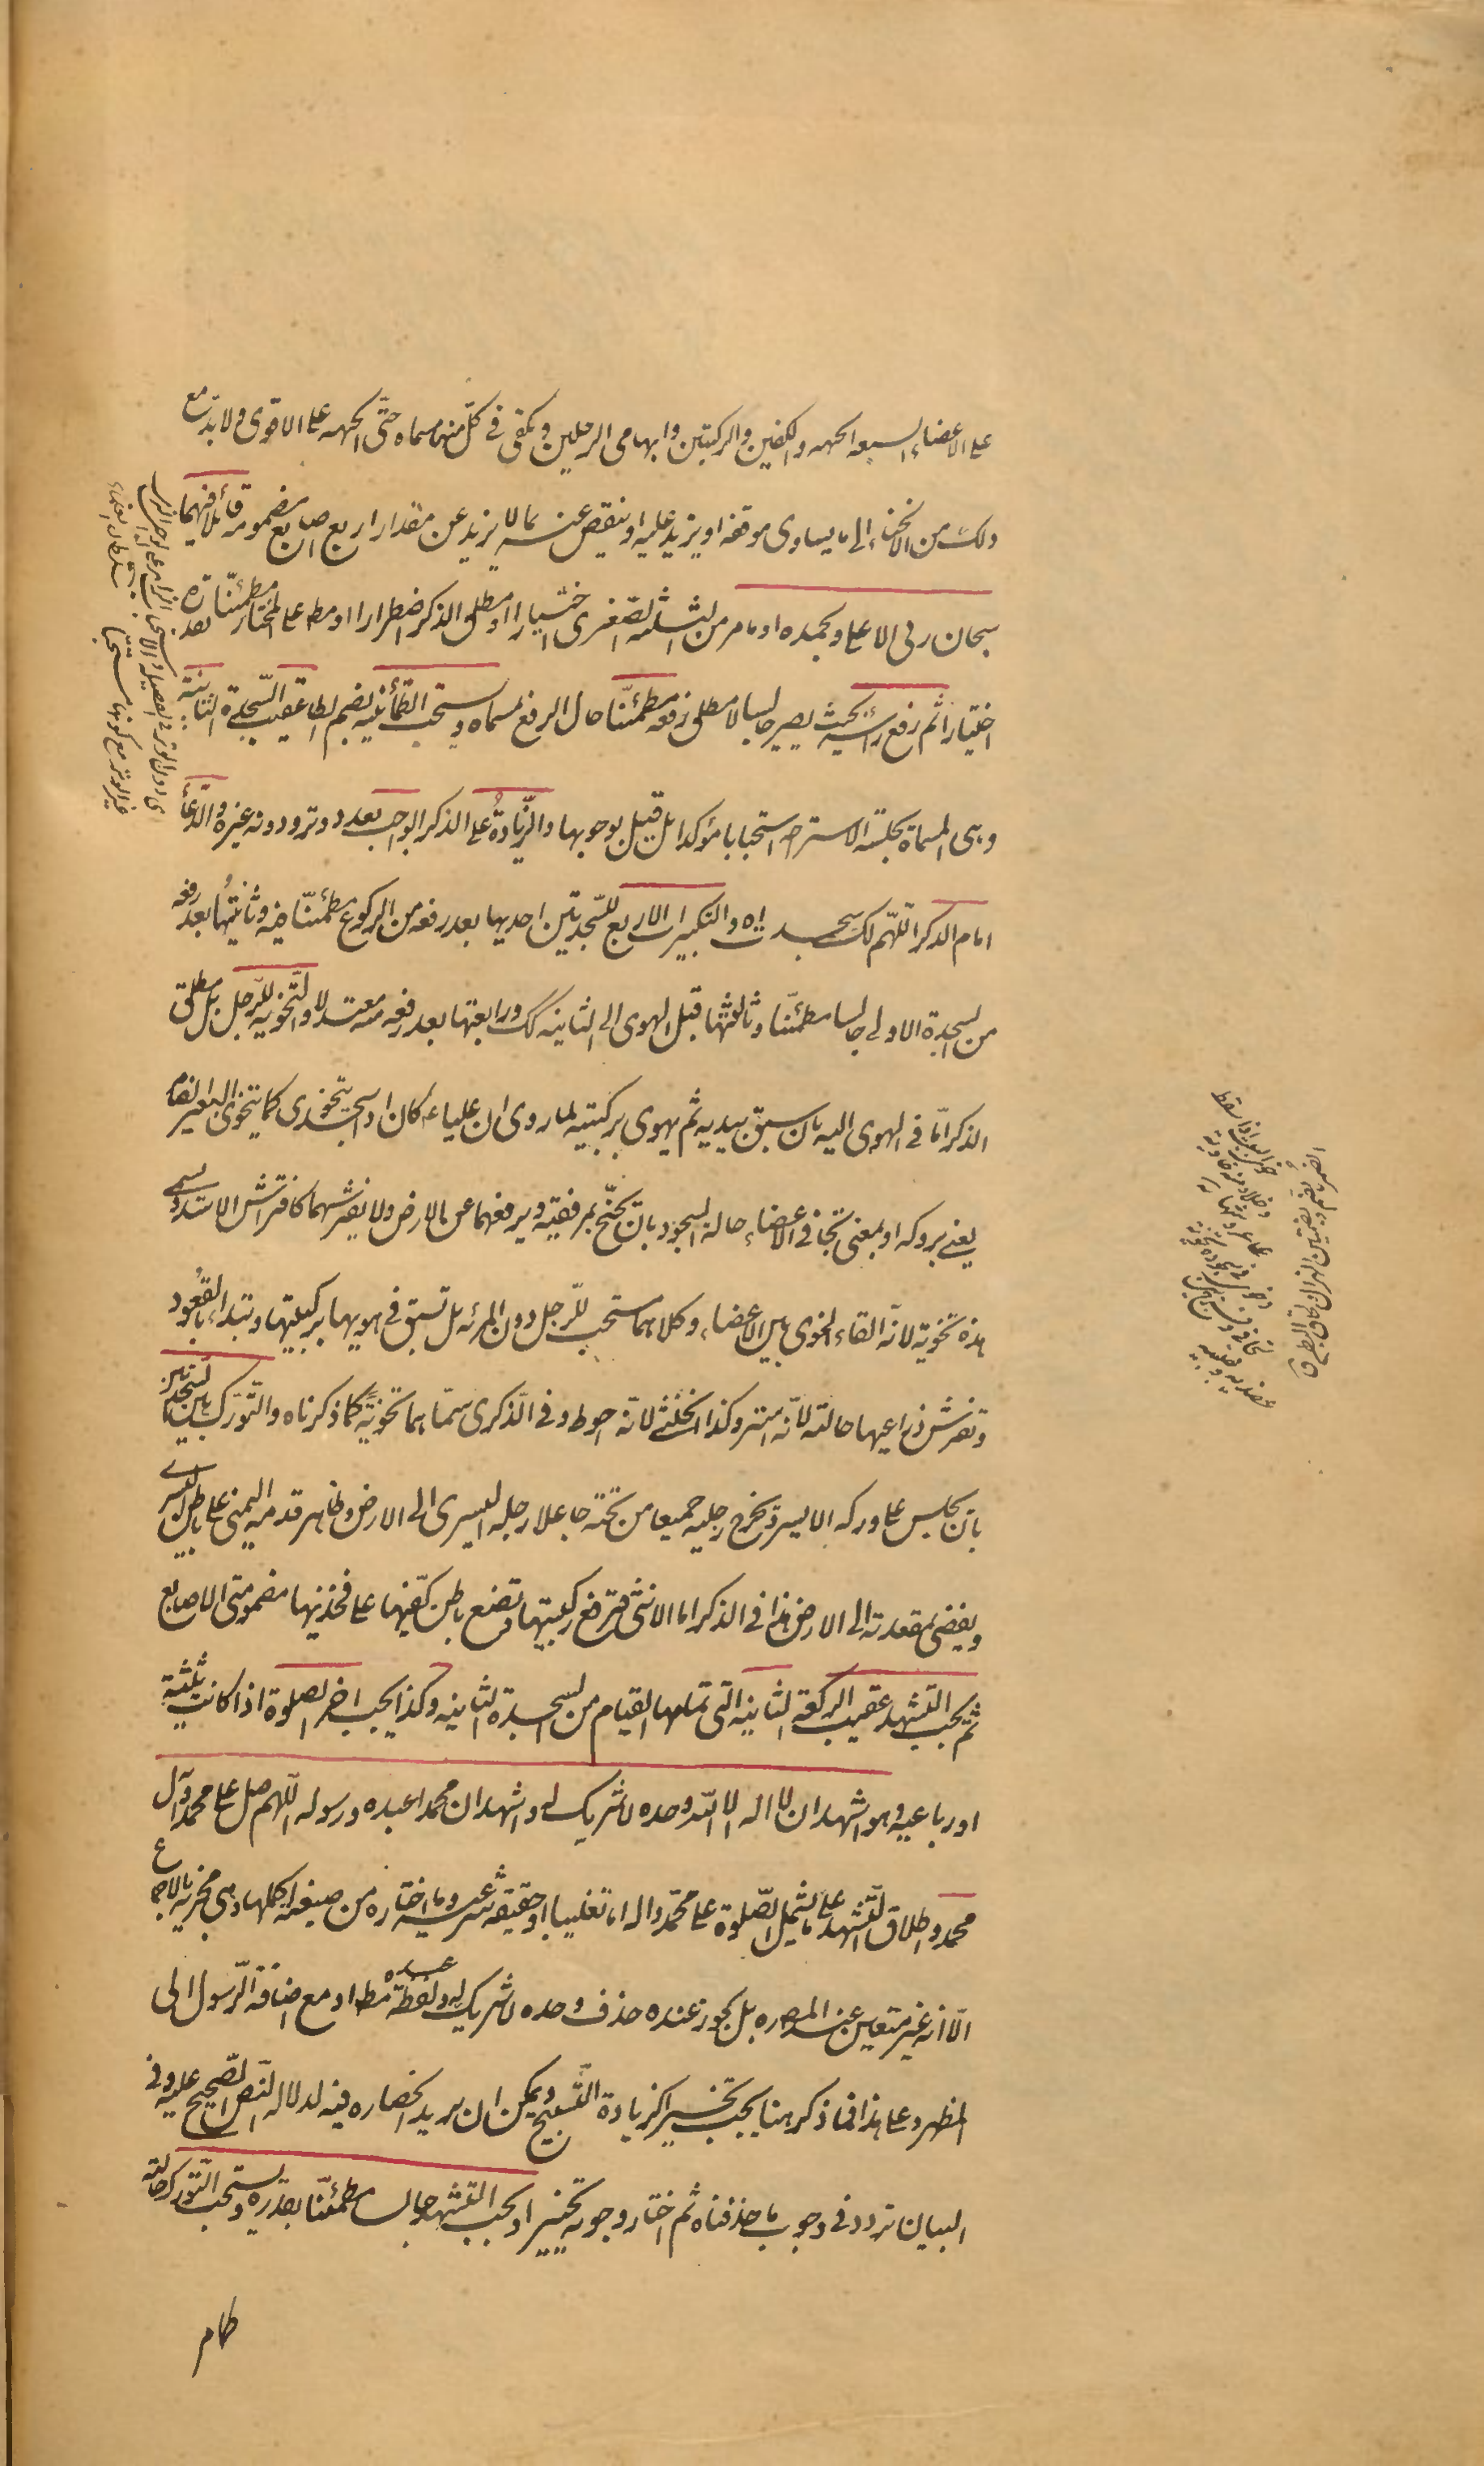 على الاعضاء السبعه الجبهه والكفين والركبتين وابهامى الرجلين ويكفى فى كلّ منها مسماه حتّى الجبهه على الاقوى ولا بدّ مع
ذلك من الانحناء الى ما يساوى موقفه او يزيد عليه او ينقص عنه بما لا يزيد عن مقدار اربع اصابع مضمومه قائلا فيهما
سبحان ربى الاعلى وبحمده او ما مر من الثلثه الصغرى اختيارا او مطلق الذكر اضطرارا او مطه على المختار مطمئنّا بقدره
اختيارا ثم رفع رأسه بحيث يصير جالسا لا مطلق رفعه مطمئنّا حال الرفع بمسماه ويستحب الطّمأنينه بضم الطا عقيب السّجدة الثانية
وهى المسماة بجلسة الاستراحه استحبابا مؤكدا بل قيل بوجوبها والزّيادةُ على الذكر الواجب بعدد وتر ودونه غيره والدّعأ
امام الذكر اللّهم لك سجدت اه والتكبيرات الاربع للسّجدتين احديها بعد رفعه من الركوع مطمئنّا فيه وثانيتهُا بعد رفعه
من السجدة الاولى جالسا مطمئنّا وثالثتها قبل الهوى الى الثانيه كك ورابعتها بعد رفعه معتدلا والتّخويه للّرجل بل مطلق
الذكر امّا فى الهوى اليه بان سبق بيديه ثم يهوى بركبتيه لما روى ان عليا ع كان اذا سجد يتخوى كما يتخوى البعير الضامر
يعنى بروكه او بمعنى تجافى الاعضاء حالة السجود بان يجنّح بمرفقيه ويرفعهما عن الارض ولا يفترشهما كافتراش الاسد ويسمى
هذه تخويه لانّه القاء الخوى بين الاعضاء وكلاهما مستحب للّرجل دون المرئه بل تسبق فى هويها بركبتيها وتبدء بالقعُود
وتفرش ذراعيها حالته لانّه استر وكذا الخنثى لانّه احوط وفى الذّكرى سمّاهما تخويّة كما ذكرناه والتّورّك بين السّجدتين
بان يجلس على وركه الايسر ويخرج رجليه جميعا من تحته جاعلا رجله اليسرى الى الارض وظاهر قدمه اليمنى على باطن اليسرى
ويفضى بمقعدته الى الارض هذا فى الذكر اما الانثى فترفع ركبتيها وتضع باطن كفّيها على فخذيها مضمومتى الاصابع
ثم يجب التشهد عقيب الركعة الثانيه التى تمامها القيام من السجدة الثانيه وكذا يجب اخر الصلوة اذا كانت ثلثية
او رباعيه وهو اشهد ان لا اله الا اللّه وحده لا شريك له واشهد ان محمدا عبده ورسوله اللّهم صل على محمد وآل
محمد واطلاق التّشهد على ما يشمل الصّلوة على محمّد واله اما تغليبا او حقيقة شرعيه وما اختاره من صيغته اكملها وهى مجزيه بالاجماع
الّا انه غير متعين عند المص ره بل يجوز عنده حذف وحده لا شريك له ولفظة عبده مطه او مع اضافة الرّسول الى
المظهر وعلى هذا فما ذكر هنا يجب تخييرا كزيادة التّسبيح ويمكن ان يريد انحصاره فيه لدلالة النّص الصّحيح عليه وفى
البيان تردد فى وجوب ما حذفناه ثم اختار وجوبه تخييرا ويجب التشهد جالسا مطمئنّا بقدره ويستحب التّورك حالته